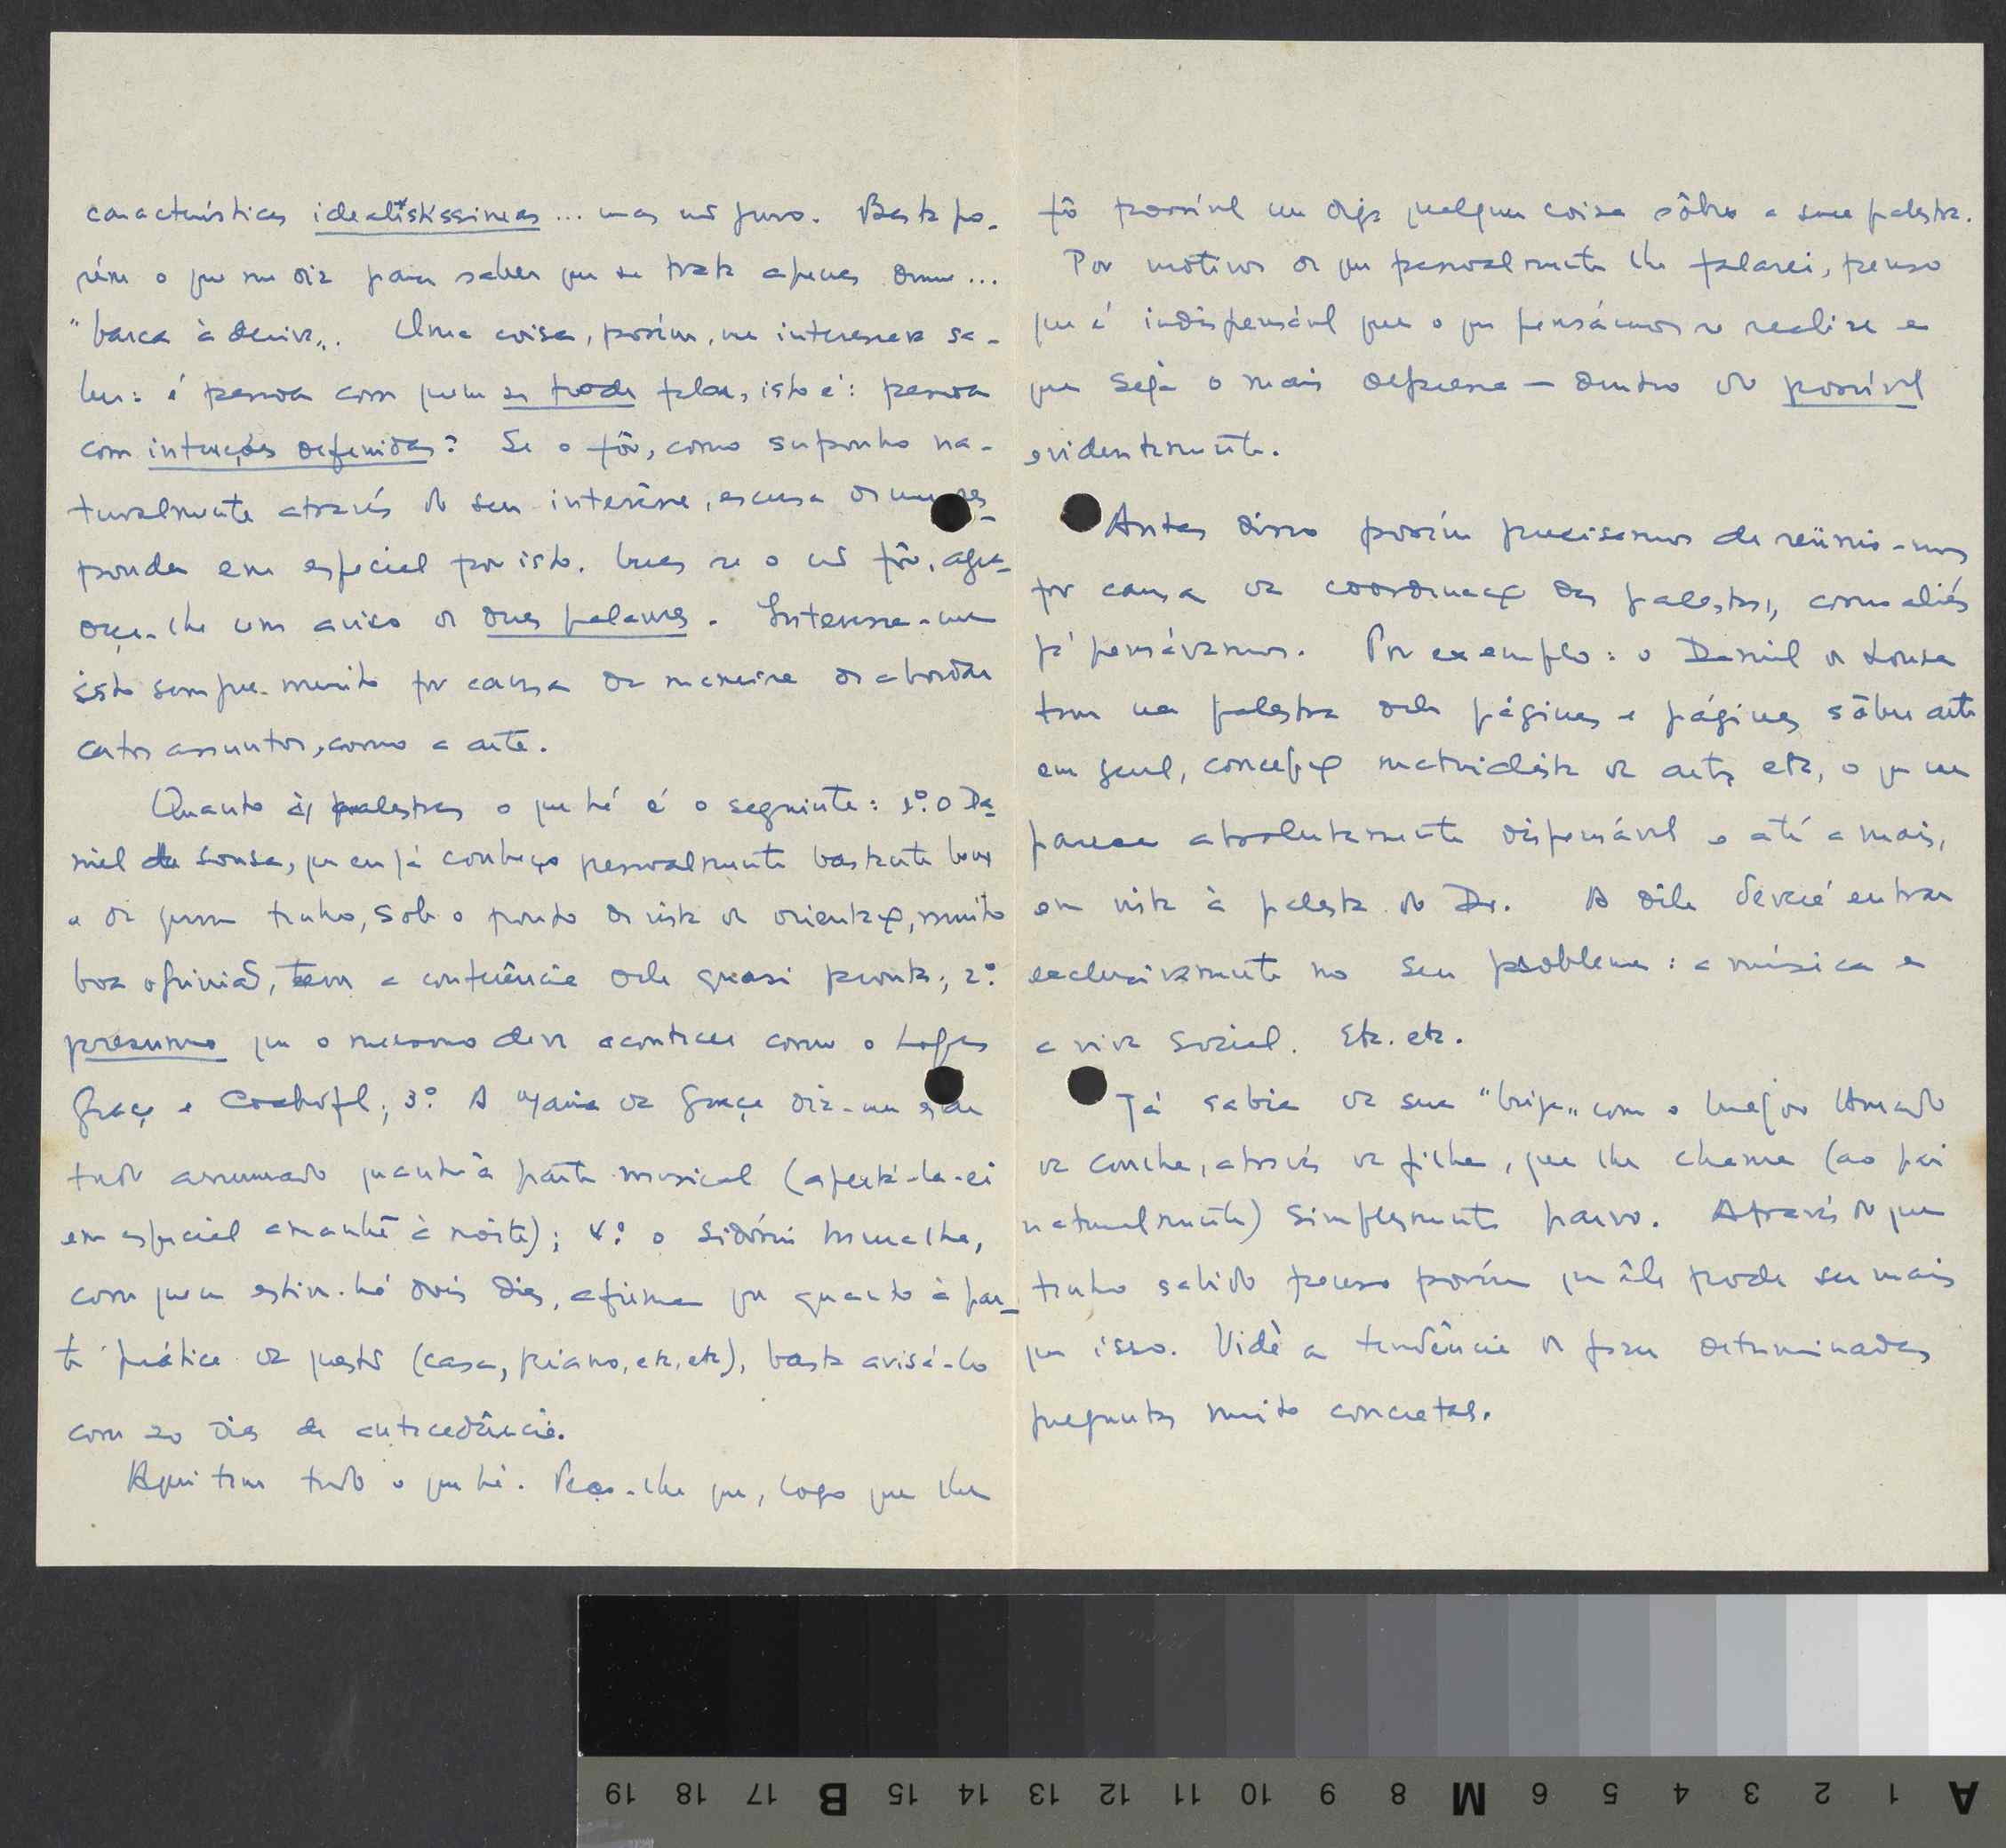 características idealistíssimas... mas não juro. Basta po-
rém o que me diz para saber que se trata apenas duma...
"barca à deriva". Uma coisa, porém, me interessava sa-
ber: é pessoa com quem se pode falar, isto é: pessoa
com intenções definidas? Se o fôr, como suponho na-
turalmente através do seu interêsse, escusa de me res-
ponder em especial por isto. Mas se o não fôr, agra-
deço-lhe um aviso de duas palavras. Interessa-me
isto sempre muito por causa da maneira de abordar
certos assuntos, como a arte.
Quanto às palestras o que há é o seguinte: 1.º o Da-
niel de Sousa, que eu já conheço pessoalmente bastante bem
e de quem tenho, sob o ponto de vista de orientação, muito
boa opinião, tem a conferência dele quasi pronta; 2.º
presumo que o mesmo deve acontecer com o Lopes
Graça e Cochofel; 3.º A Maria da Graça diz-me estar
tudo arrumado quanto à parte musical (apertá-la-ei
em especial amanhã à noite); 4.º o Sidónio Muralha,
com quem estive há dois dias, afirma que quanto à par-
te prática da questão (casa, piano, etc, etc), basta avisá-lo
com 20 dias de antecedência.
Aqui tem tudo o que há. Peço-lhe que, logo que lhe
fôr possível me diga qualquer coisa sôbre a sua palestra.
Por motivos de que pessoalmente lhe falarei, penso
que é indispensável que o que pensámos se realize e
que seja o mais depressa — dentro do possível
evidentemente.
Antes disso porém precisamos de reünir-nos
por causa da coordenação das palestras, como aliás
já pensávamos. Por exemplo: o Daniel de Sousa
tem na palestra dele páginas e páginas sôbre arte
em geral, concepção materialista da arte, etc, o que me
parece absolutamente dispensável e até a mais,
em vista à palestra do Dr. A dêle deverá entrar
exclusivamente no seu problema: a música e
a vida social. Etc. etc.
Já sabia da sua "briga" com o Major Amado
da Cunha, através da filha, que lhe chama (ao pai
naturalmente) simplesmente parvo. Através do que
tenho sabido penso porém que êle pode ser mais
que isso. Vidè a tendência de fazer determinadas
preguntas muito concretas.
19 18 17 B 15 14 13 12 11 10 9 8 M 6 5 4 3 2 1 A